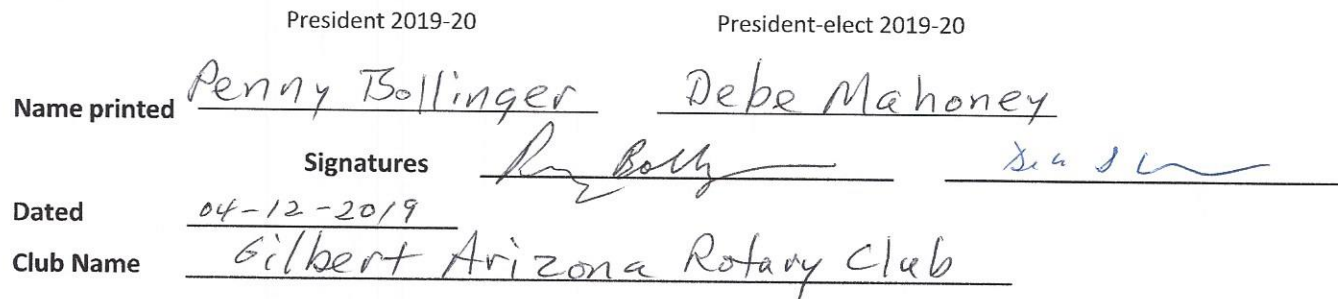 President 2019-20 President-elect 2019-20
Name printed Penny Bollinger Debe Mahoney
Signatures
Dated 04-12-2019
Club Name Gilbert Arizona Rotary Club